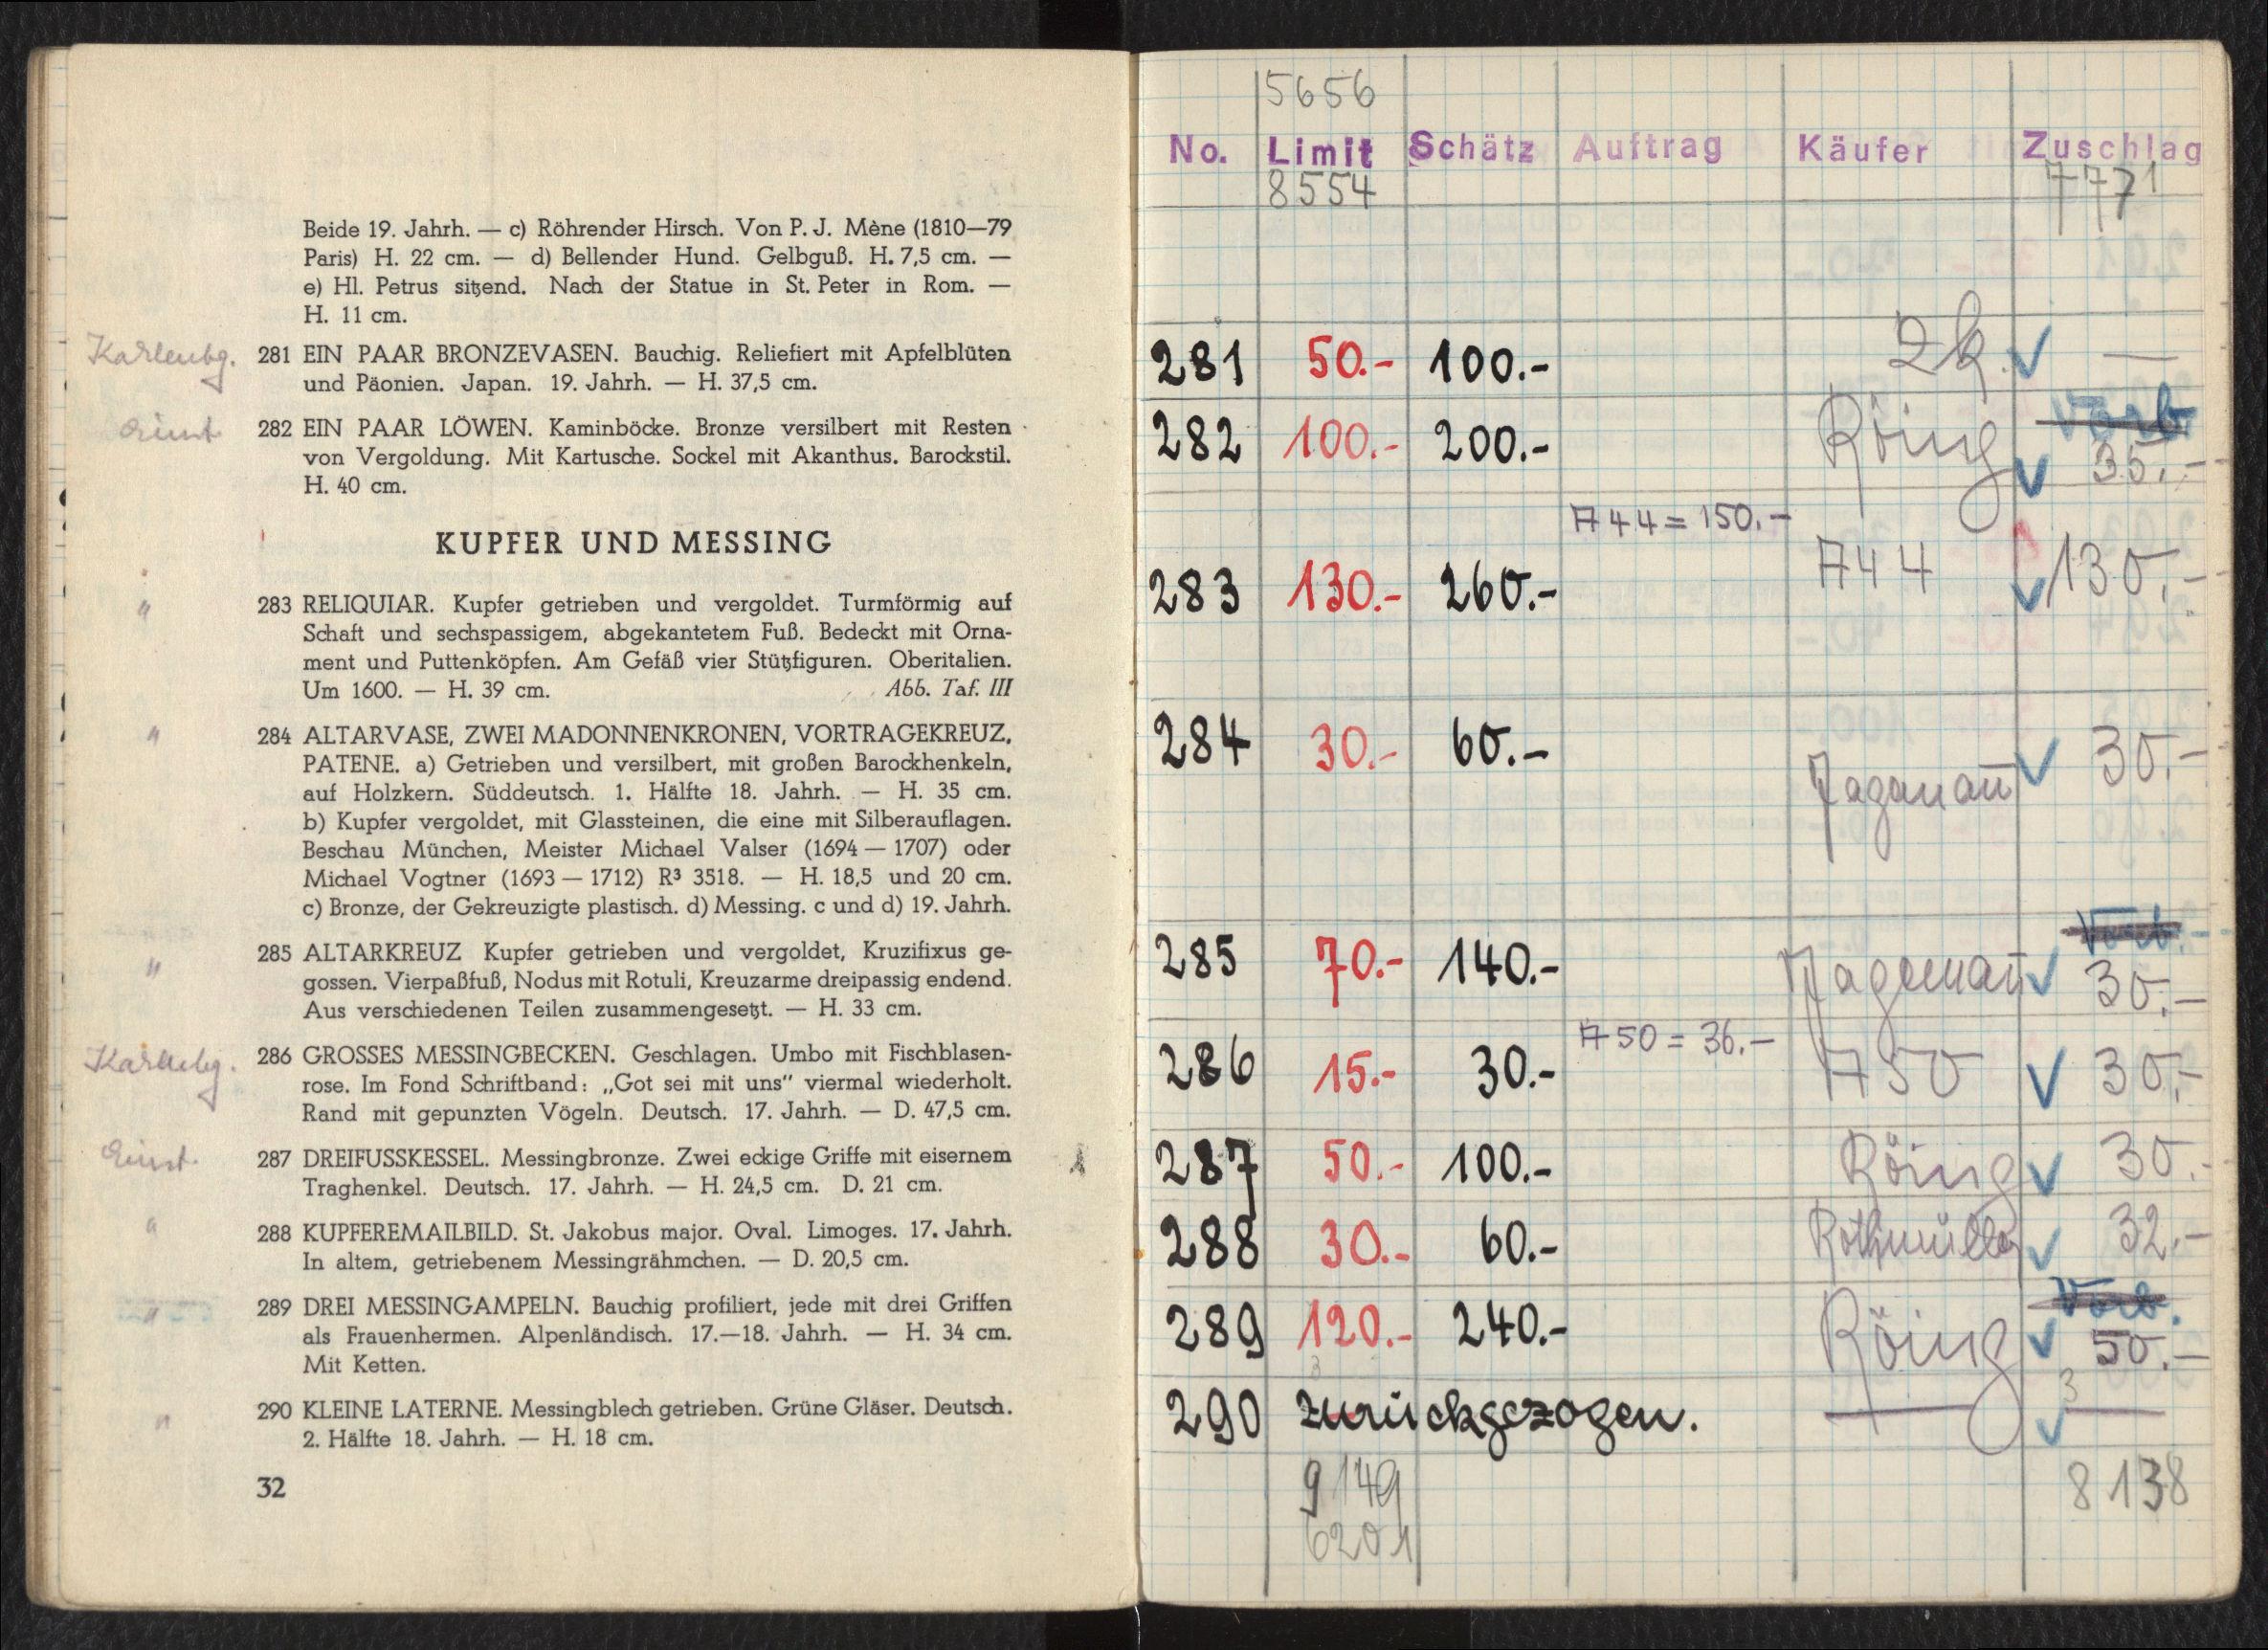 Beide 19. Jahrh. — c) Röhrender Hirsch. Von P. J. Mène (1810—79
Paris) H. 22 cm. — d) Bellender Hund. Gelbguß. H. 7,5 cm. —
e) Hl. Petrus sitzend. Nach der Statue in St. Peter in Rom. —
H. 11 cm.
281 EIN PAAR BRONZEVASEN. Bauchig. Reliefiert mit Apfelblüten
und Päonien. Japan. 19. Jahrh. — H. 37,5 cm.
282 EIN PAAR LÖWEN. Kaminböcke. Bronze versilbert mit Resten
von Vergoldung. Mit Kartusche. Sockel mit Akanthus. Barockstil.
H. 40 cm.
KUPFER UND MESSING
" 283 RELIQUIAR. Kupfer getrieben und vergoldet. Turmförmig auf
Schaft und sechspassigem, abgekantetem Fuß. Bedeckt mit Orna-
ment und Puttenköpfen. Am Gefäß vier Stützfiguren. Oberitalien.
Um 1600. — H. 39 cm. Abb. Taf. III
" 284 ALTARVASE, ZWEI MADONNENKRONEN, VORTRAGEKREUZ,
PATENE. a) Getrieben und versilbert, mit großen Barockhenkeln,
auf Holzkern. Süddeutsch. 1. Hälfte 18. Jahrh. — H. 35 cm.
b) Kupfer vergoldet, mit Glassteinen, die eine mit Silberauflagen.
Beschau München, Meister Michael Valser (1694 — 1707) oder
Michael Vogtner (1693 — 1712) R³ 3518. — H. 18,5 und 20 cm.
c) Bronze, der Gekreuzigte plastisch. d) Messing. c und d) 19. Jahrh.
" 285 ALTARKREUZ Kupfer getrieben und vergoldet, Kruzifixus ge-
gossen. Vierpaßfuß, Nodus mit Rotuli, Kreuzarme dreipassig endend.
Aus verschiedenen Teilen zusammengesetzt. — H. 33 cm.
286 GROSSES MESSINGBECKEN. Geschlagen. Umbo mit Fischblasen-
rose. Im Fond Schriftband: „Got sei mit uns" viermal wiederholt.
Rand mit gepunzten Vögeln. Deutsch. 17. Jahrh. — D. 47,5 cm.
287 DREIFUSSKESSEL. Messingbronze. Zwei eckige Griffe mit eisernem
Traghenkel. Deutsch. 17. Jahrh. — H. 24,5 cm. D. 21 cm.
" 288 KUPFEREMAILBILD. St. Jakobus major. Oval. Limoges. 17. Jahrh.
In altem, getriebenem Messingrähmchen. — D. 20,5 cm.
" 289 DREI MESSINGAMPELN. Bauchig profiliert, jede mit drei Griffen
als Frauenhermen. Alpenländisch. 17.—18. Jahrh. — H. 34 cm.
Mit Ketten.
" 290 KLEINE LATERNE. Messingblech getrieben. Grüne Gläser. Deutsch.
2. Hälfte 18. Jahrh. — H. 18 cm.
32
5656
No. Limit Schätz Auftrag Käufer Zuschlag
8554 7771
281 50.- 100.- —
Vorb
282 100.- 200.- Röing 35.-
744 = 150.-
283 130.- 260.- 744 130.-
284 30.- 60.- 30.-
Vorb.
285 70.- 140.- Jageman 30.-
750 = 36.-
286 15.- 30.- 750 30.-
287 50.- 100.- Röing 30.-
288 30.- 60.- Rothmüller 32.-
Vorb.
289 120.- 240.- Röing 50.-
3 3
290 zurückgezogen. — —
9149 8138
6201